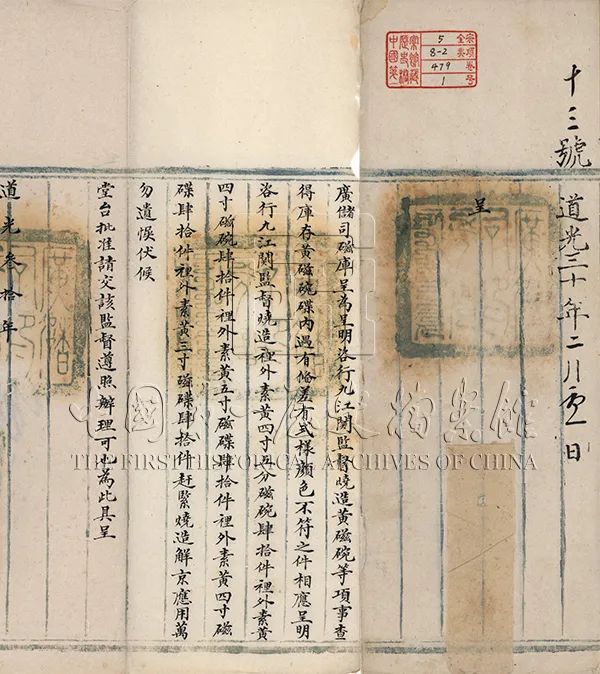 十三號 道光三十年二月 日
5
8-2
479
1
呈
廣儲司磁庫呈為呈明咨行九江関監督燒造黃磁碗等項事查
得庫存黃磁碗碟內遇有傷差有式樣顏色不符之件相應呈明
咨行九江関監督燒造裡外素黃四寸五分磁碗肆拾件裡外素黃
四寸磁碗肆拾件裡外素黃五寸磁碟肆拾件裡外素黃四寸磁
碟肆拾件裡外素黃三寸磁碟肆拾件赶緊燒造解京應用萬
勿遺悞伏候
堂台批准請交該監督遵照辦理可也為此具呈
道光叁拾年
中國第一歷史檔案館
THE FIRST HISTORICAL ARCHIVES OF CHINA